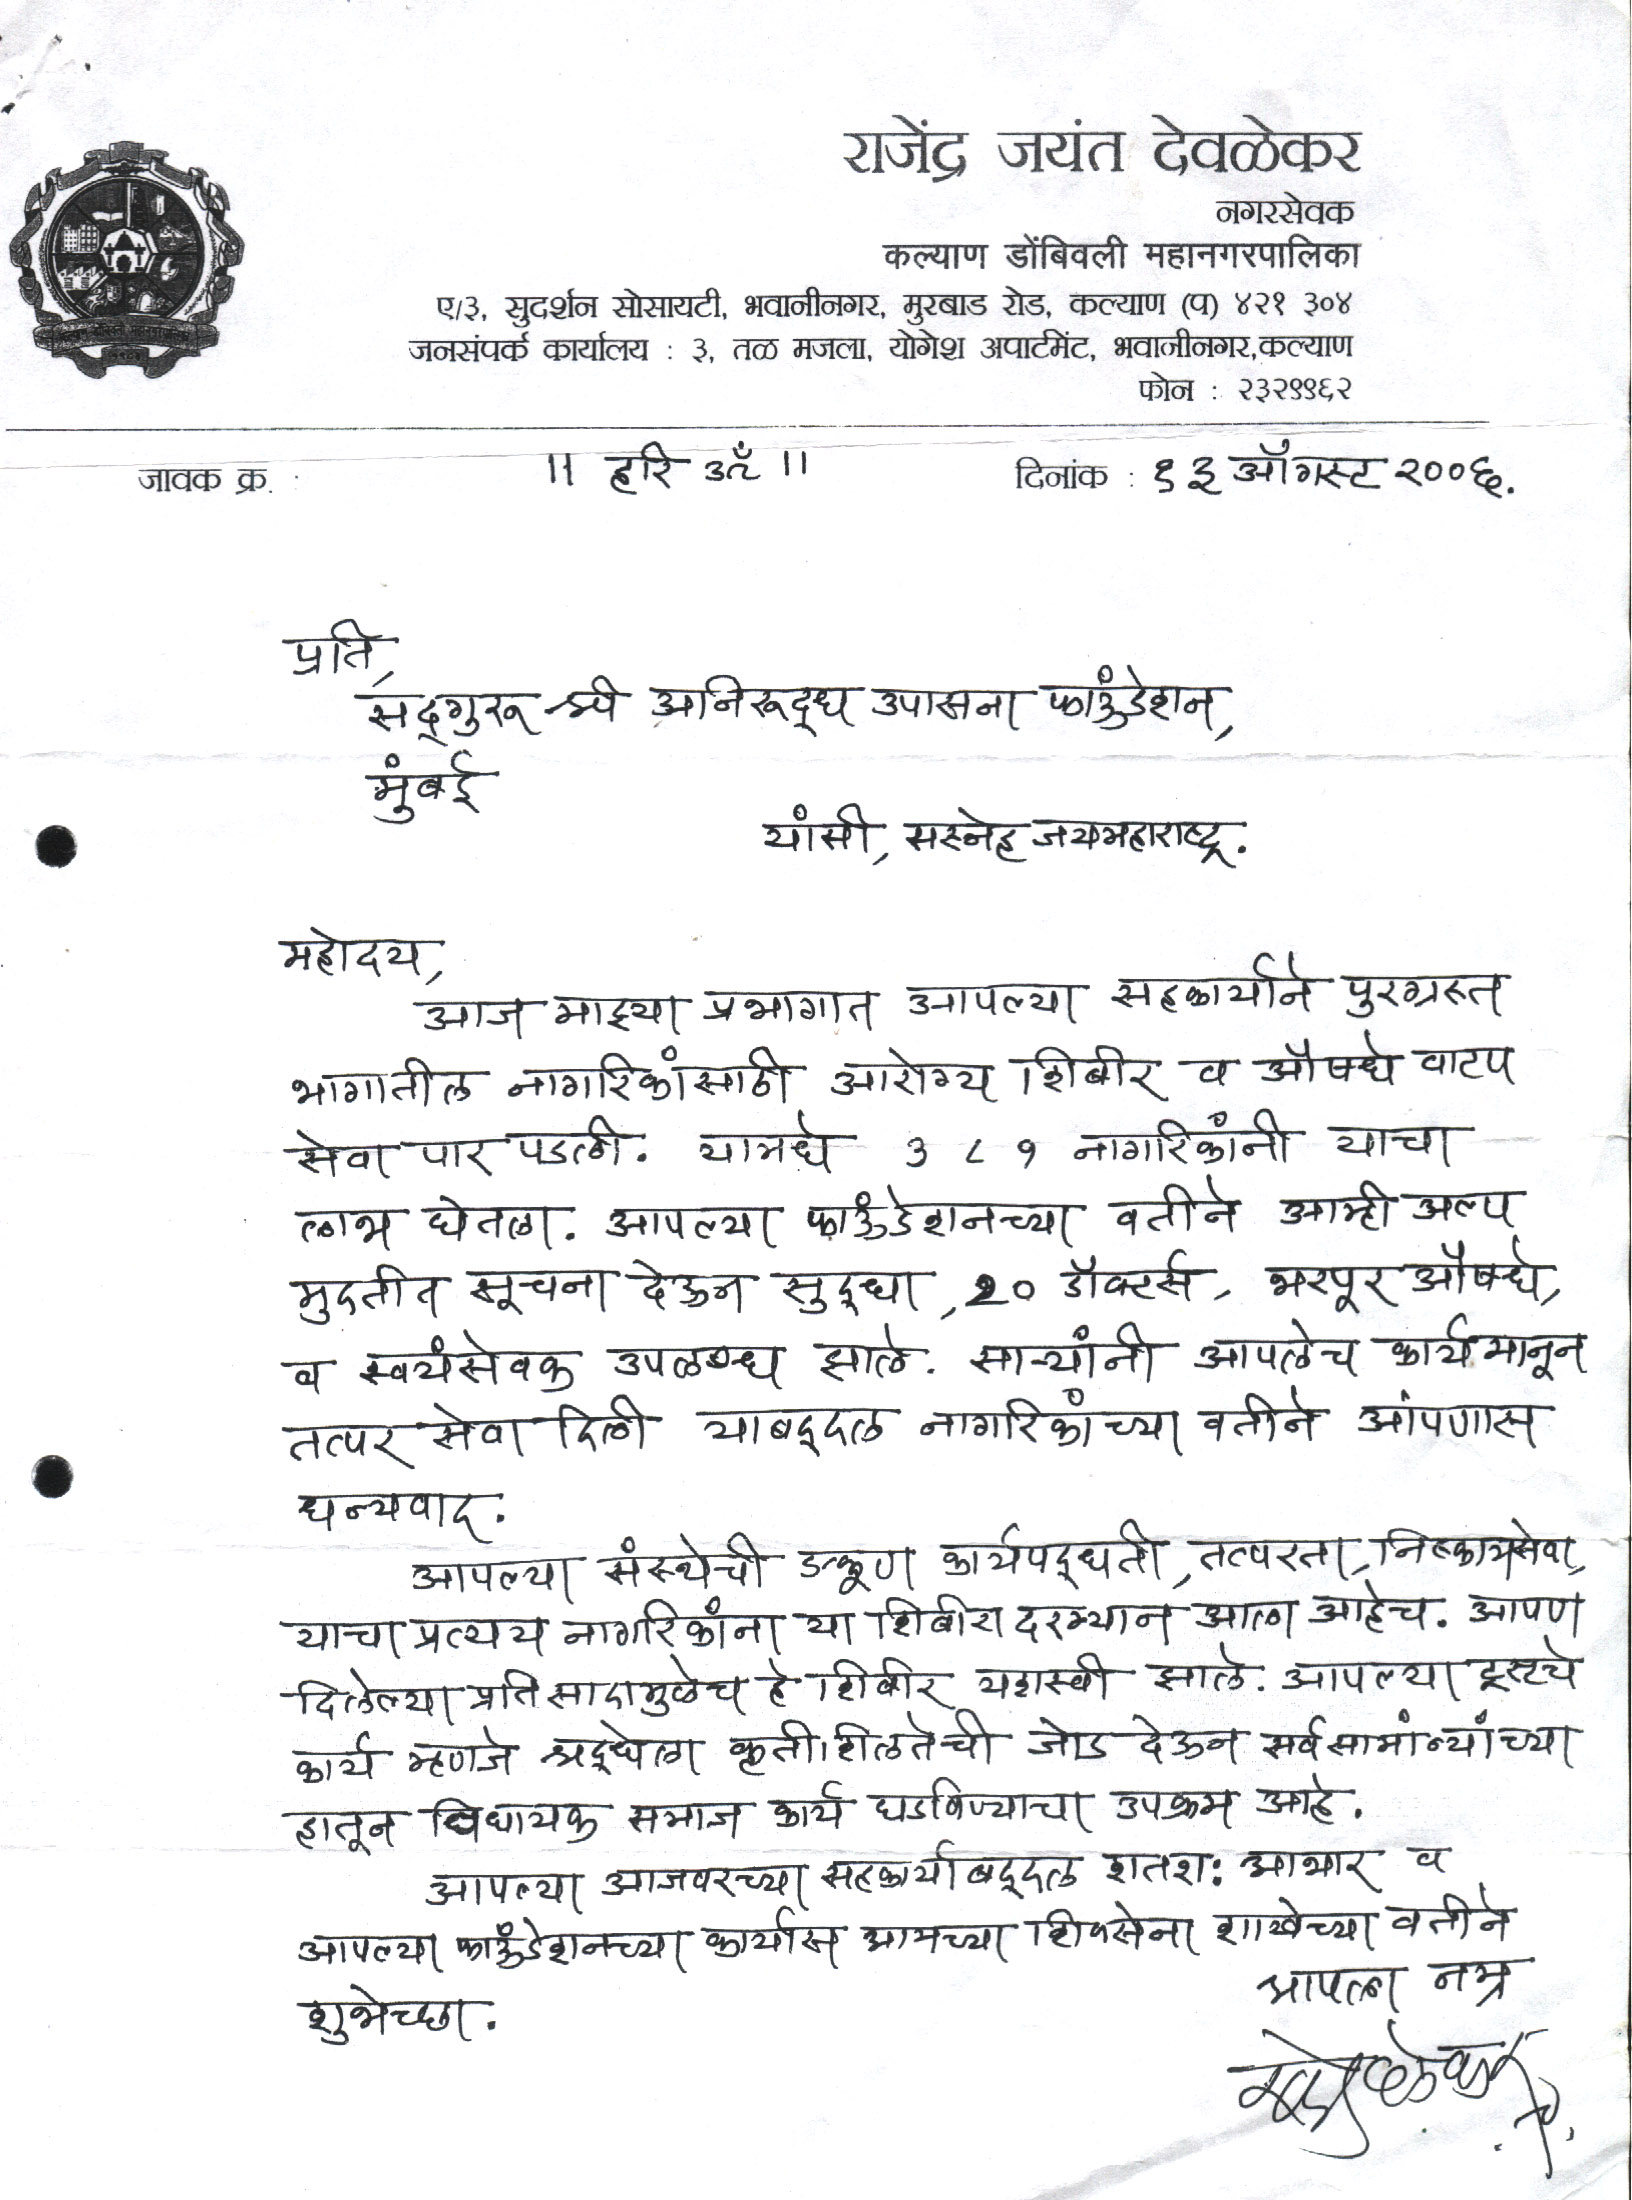 राजेंद्र जयंत देवळेकर
नगरसेवक
कल्याण डोंबिवली महानगरपालिका
ए/३, सुदर्शन सोसायटी, भवानीनगर, मुरबाड रोड, कल्याण (प) ४२१ ३०४
जनसंपर्क कार्यालय : ३, तळ मजला, योगेश अपार्टमेंट, भवानीनगर,कल्याण
फोन : २३२९९६२
जावक क्र. :
॥ हरि ॐ ॥
दिनांक : १३ ऑगस्ट २००६.
प्रति,
सद्‌गुरू श्री अनिरूद्ध उपासना फाऊंडेशन,
मुंबई
यांसी, सस्नेह जयमहाराष्ट्र.
महोदय,
आज माझ्या प्रभागात आपल्या सहकार्याने पुरग्रस्त
भागातील नागरिकांसाठी आरोग्य शिबीर व औषधे वाटप
सेवा पार पडली. यामधे ३८१ नागरिकांनी याचा
लाभ घेतला. आपल्या फाऊंडेशनच्या वतीने आम्ही अल्प
मुदतीत सूचना देऊन सुद्धा, २० डॉक्टर्स, भरपूर औषधे,
व स्वयंसेवक उपलब्ध झाले. साऱ्यांनी आपलेच कार्य मानून
तत्पर सेवा दिली याबद्दल नागरिकांच्या वतीने आपणास
धन्यवाद.
आपल्या संस्थेची कार्यपद्धती, तत्परता, निष्कामसेवा,
याचा प्रत्यय नागरिकांना या शिबीरा दरम्यान आला आहेच. आपण
दिलेल्या प्रतिसादामुळेच हे शिबीर यशस्वी झाले. आपल्या ट्रस्टचे
कार्य म्हणजे श्रद्धेला कृतीशिलतेची जोड देऊन सर्वसामांन्यांच्या
हातून विधायक समाज कार्य घडविण्याचा उपक्रम आहे.
आपल्या आजवरच्या सहकार्याबद्दल शतश: आभार व
आपल्या फाऊंडेशनच्या कार्यास आमच्या शिवसेना शाखेच्या वतीने
शुभेच्छा.
आपला नम्र